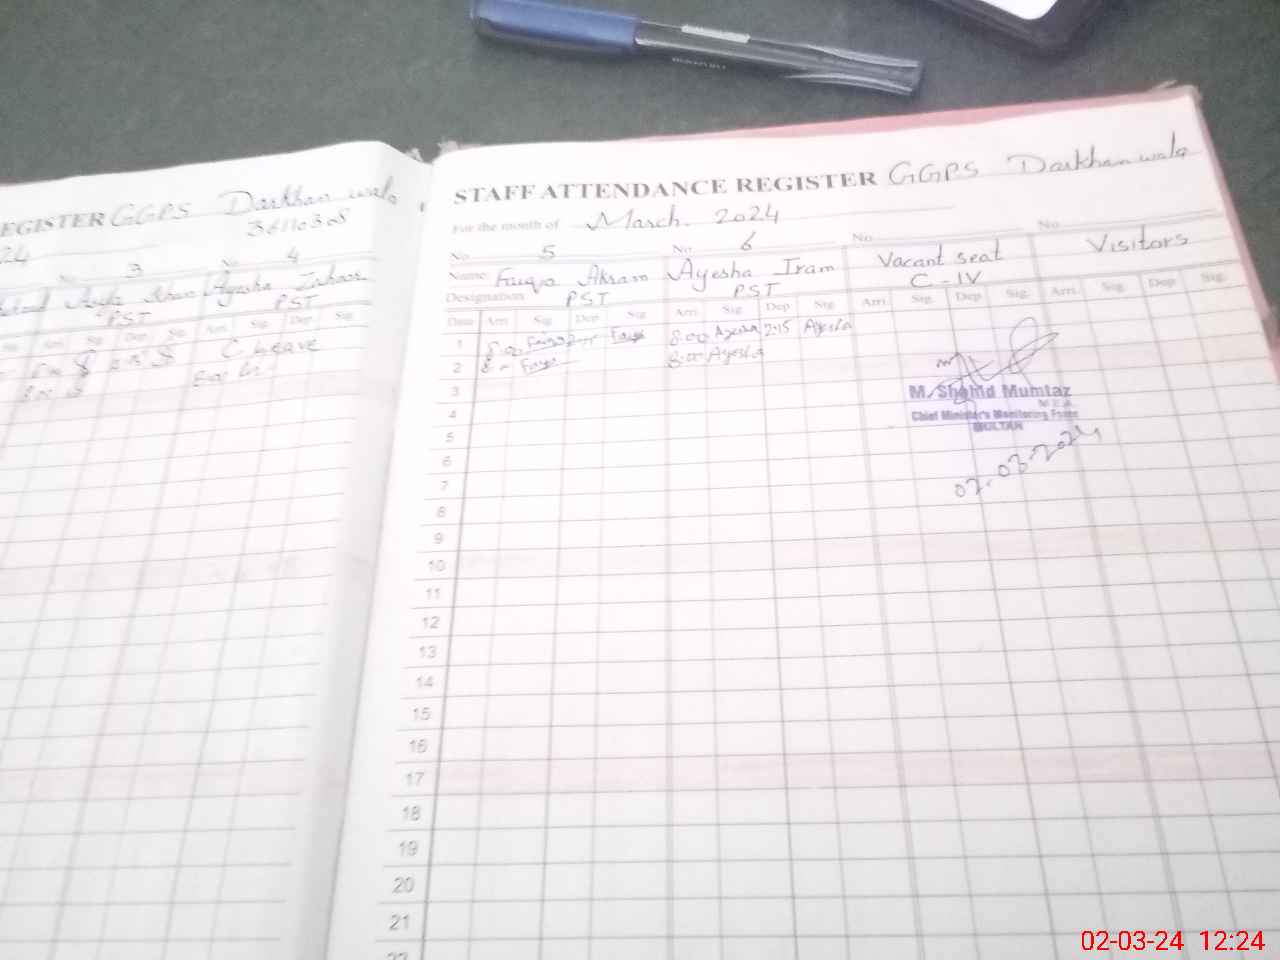 EGISTER GGPS Darkhan wala
36110305
24
3 No 4
Khan Ayesha Zahoor
PST PST
Sig Arri Sig Dep Sig
C. Leave
STAFF ATTENDANCE REGISTER GGPS Darkhan wala
For the month of March. 2024
No 5 No 6 No No
Name Faiqa Akram Ayesha Iram Vacant seat Visitors
Designation PST PST C-IV
Date Arri Sig Dep Sig Arri Sig Dep Sig Arri Sig Dep Sig Arri Sig Dep Sig
1 8:00 8:00 Ayesha 2:15 Ayesha
2 8:00 Ayesha
3
M. Shahid Mumtaz
M.E.A.
4
Chief Minister's Monitoring Force
MULTAN
5
02.03.2024
6
7
8
9
10
11
12
13
14
15
16
17
18
19
20
21
22
02-03-24 12:24